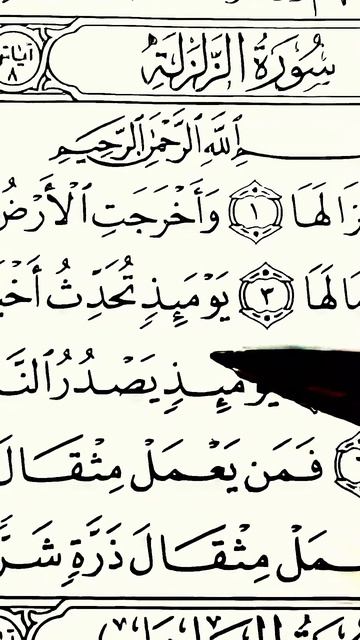 سُورَةُ الزَّلْزَلَةِ ٨
ٱللَّهِ ٱلرَّحْمَٰنِ ٱلرَّحِيمِ
زَالَهَا ١ وَأَخْرَجَتِ ٱلْأَرْضُ
مَا لَهَا ٣ يَوْمَئِذٍ تُحَدِّثُ أَخْبَـ
يَوْمَئِذٍ يَصْدُرُ ٱلنَّا
فَمَن يَعْمَلْ مِثْقَالَ
ـمَلْ مِثْقَالَ ذَرَّةٍ شَرًّ